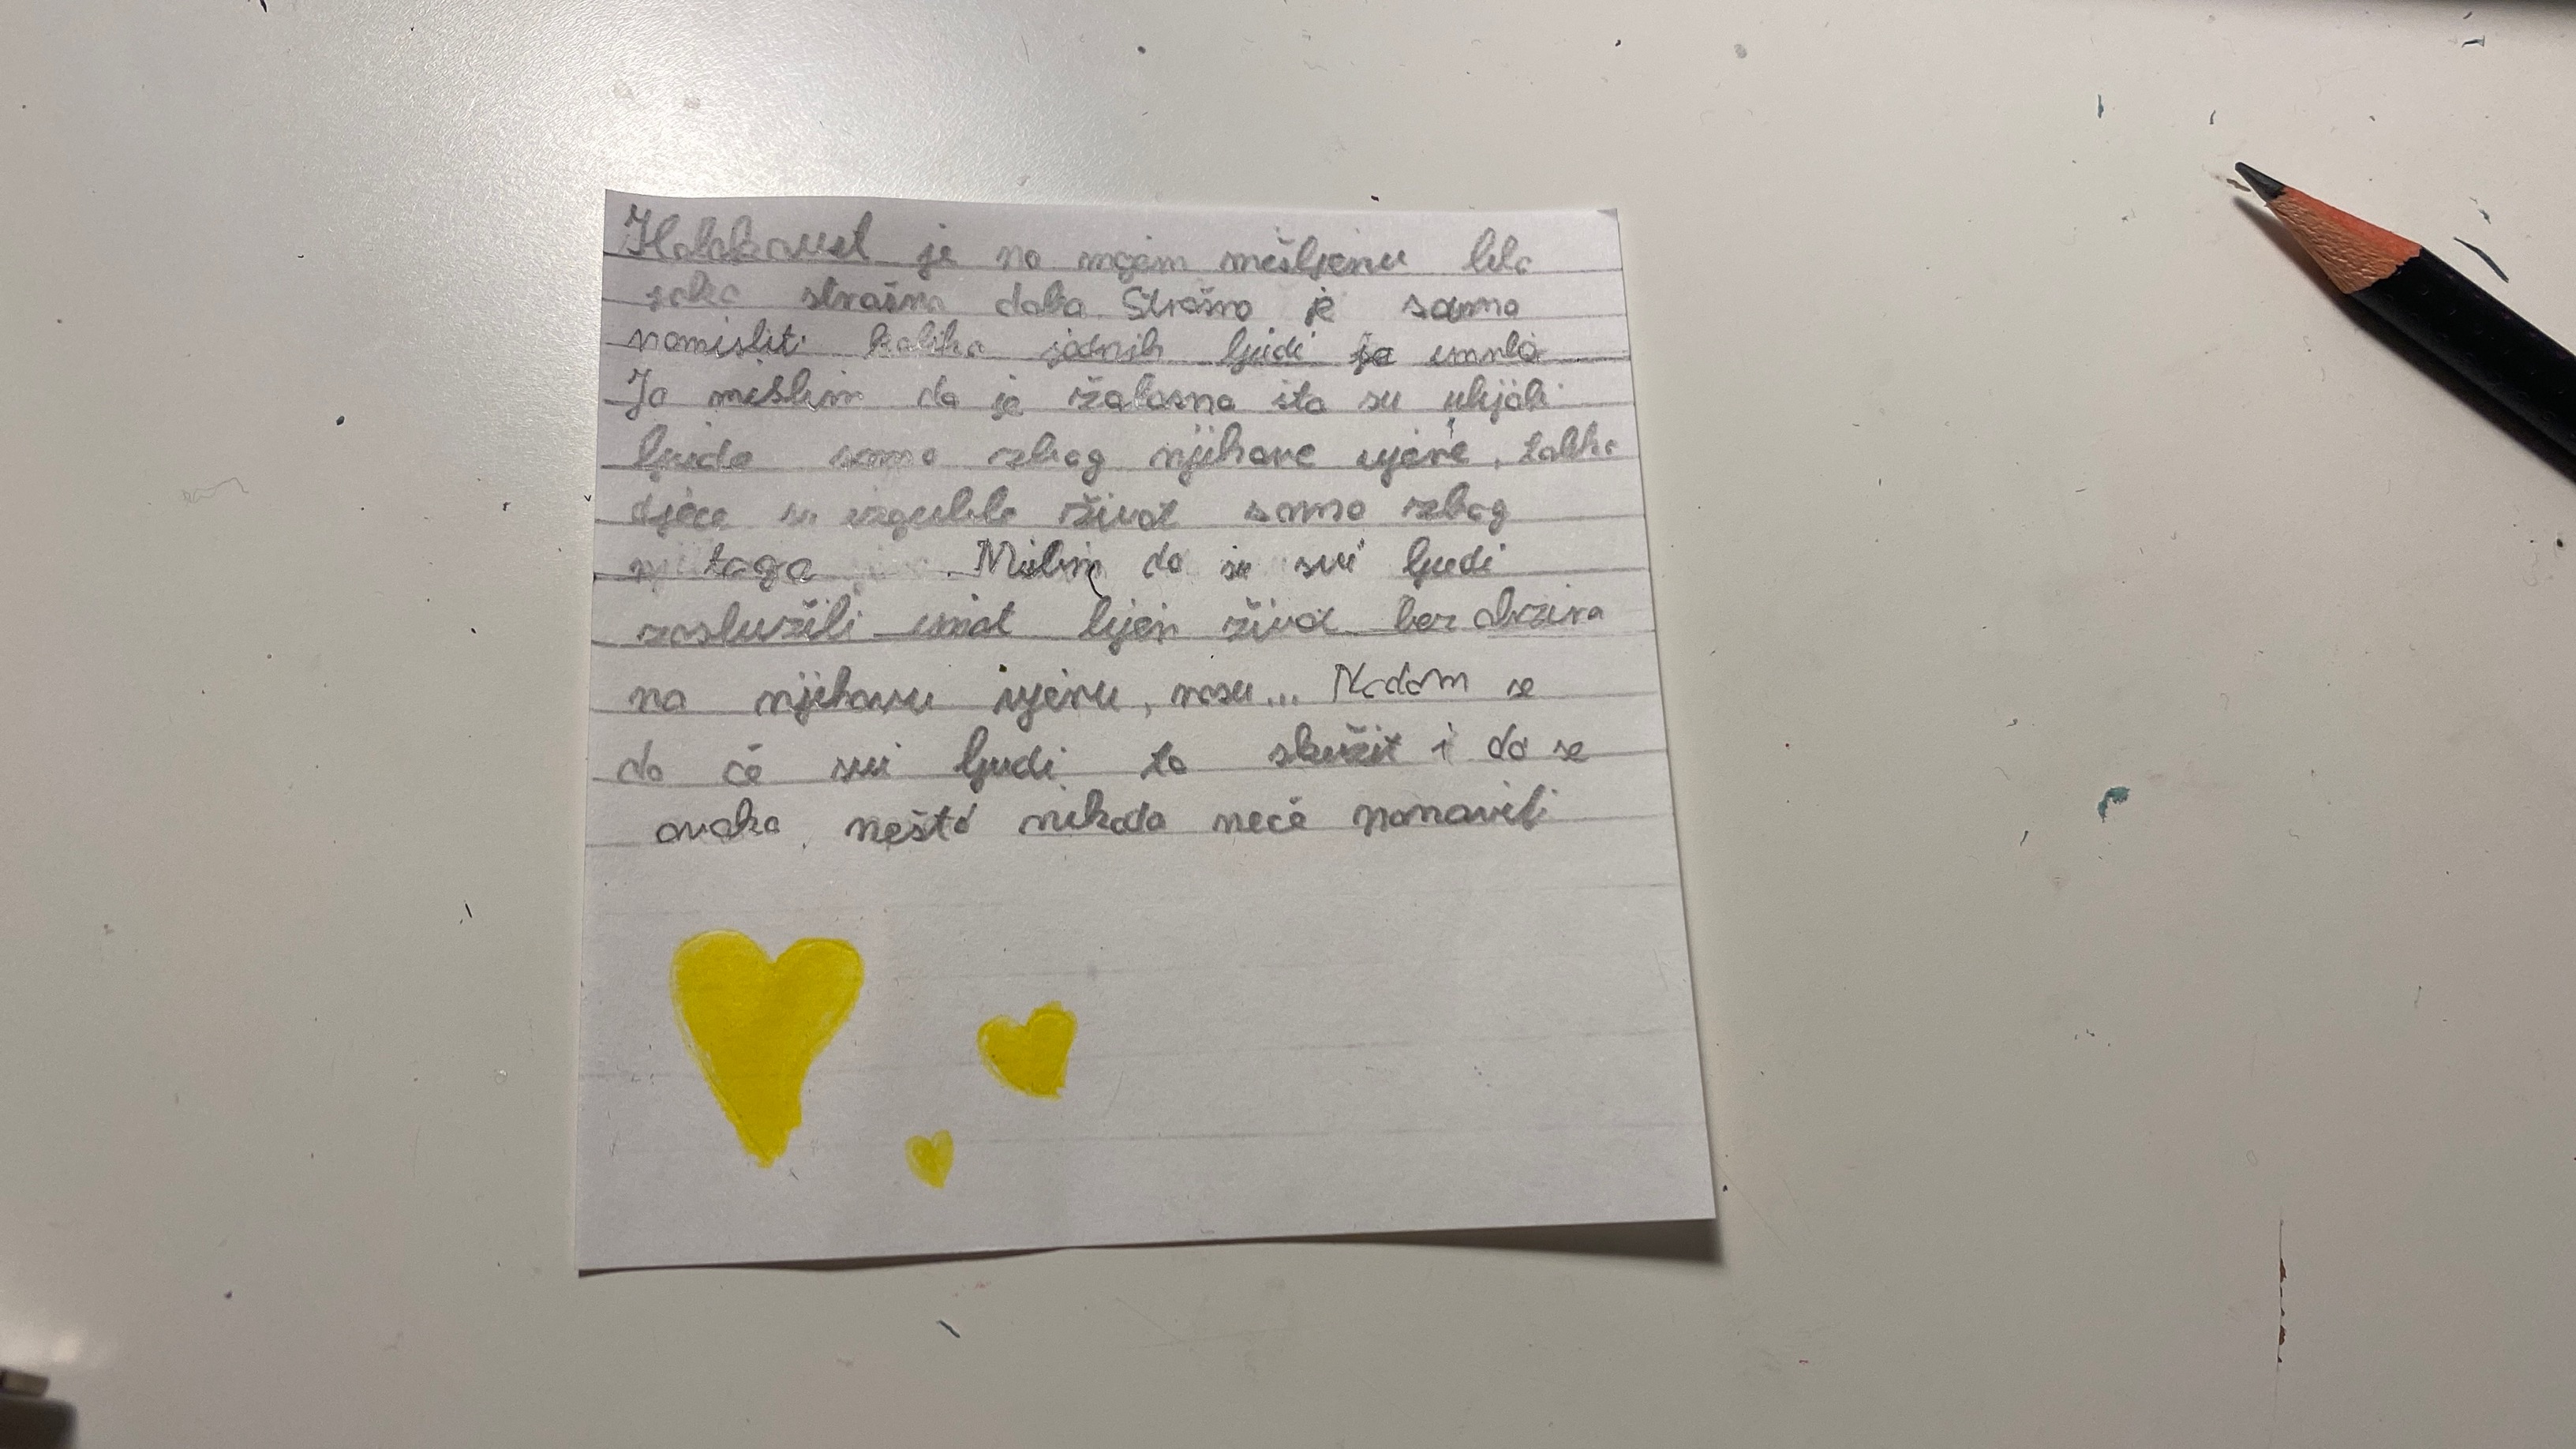 Holokaust je po mojem mišljenu bilo
jako strašno doba. Strašno je samo
pomisliti koliko jadnih ljudi je umrlo
Ja mislim da je žalosno što su ubijali
ljude samo zbog njihove vjere, toliko
djece su izgubile život samo zbog
toga. Mislim da su svi ljudi
zaslužili imat lijep život bez obzira
na njihovu vjeru, rasu... Nadam se
da će svi ljudi to skužit i da se
ovako nešto nikada neće ponoviti